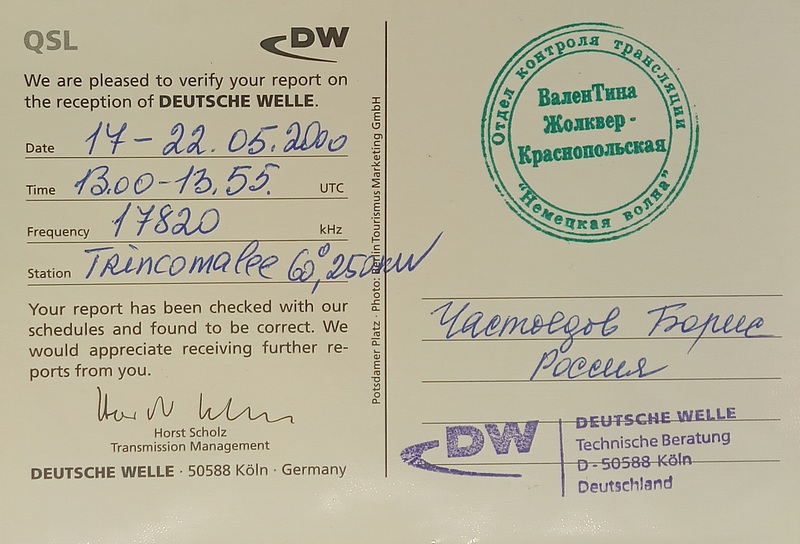 QSL
DW
We are pleased to verify your report on
the reception of DEUTSCHE WELLE.
Date 17-22.05.2000
Time 13.00-13.55. UTC
Frequency 17820 kHz
Station Trincomalee 60°, 250kW
Your report has been checked with our
schedules and found to be correct. We
would appreciate receiving further re-
ports from you.
Horst Scholz
Transmission Management
DEUTSCHE WELLE · 50588 Köln · Germany
Potsdamer Platz · Photo: Berlin Tourismus Marketing GmbH
Отдел контроля трансляции
ВаленТина
Жолквер -
Краснопольская
"Немецкая волна"
Частоедов Борис
Россия
DW
DEUTSCHE WELLE
Technische Beratung
D - 50588 Köln
Deutschland